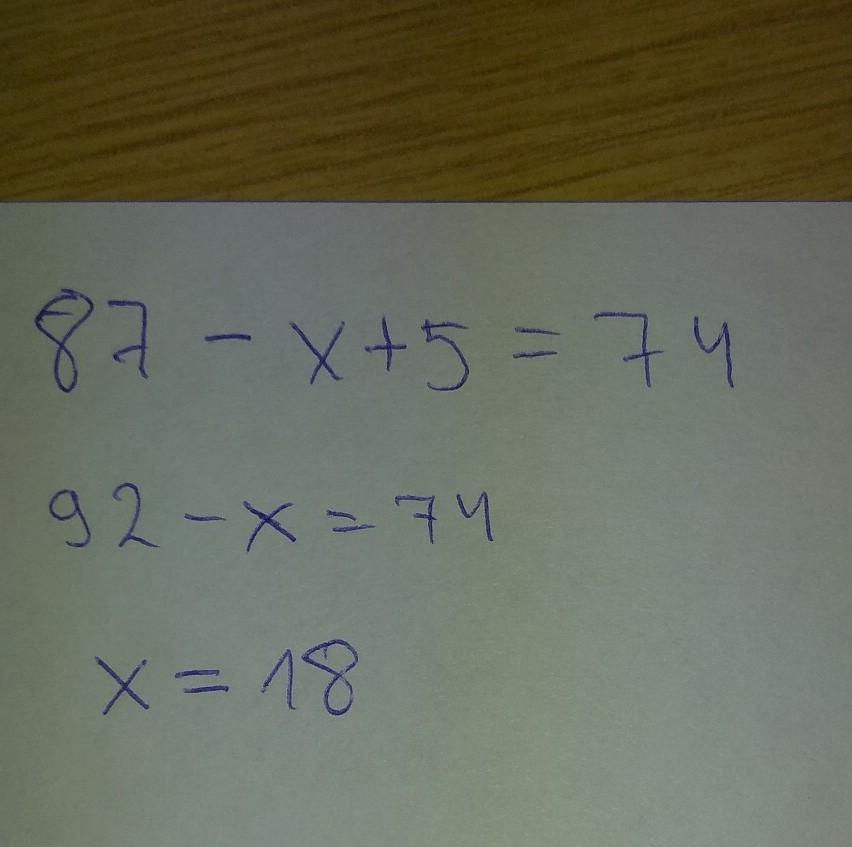 87 - x + 5 = 74
92 - x = 74
x = 18